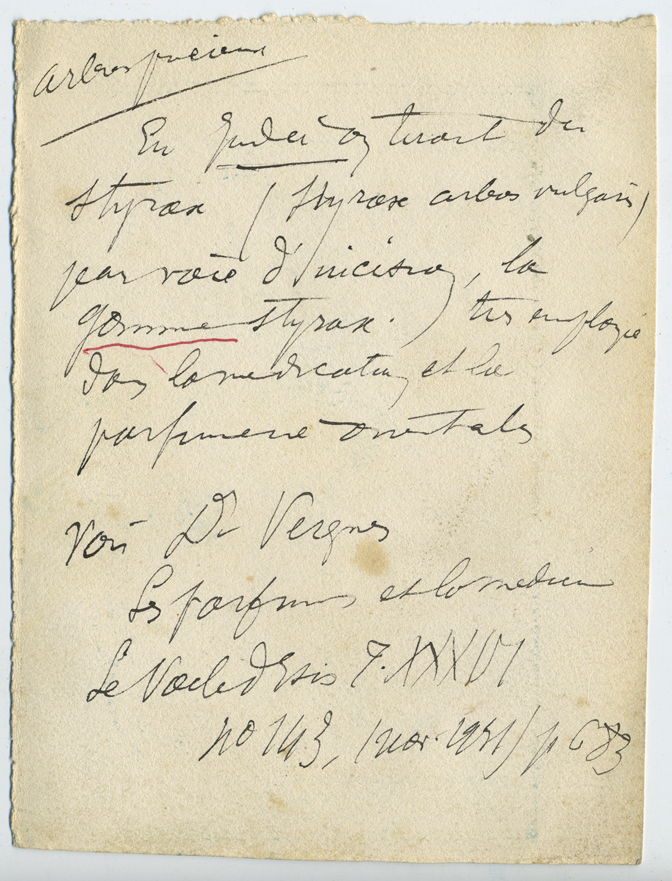 arbres précieux
En Judée on tirait du
styrax (styrax arbor vulgaris)
par voie d'incision, la
gomme styrax.) très employée
dans la médication et la
parfumerie orientales
Voir Dr Vergnes
Les parfums et la médecine
Le Voile d'Isis T. XXXVI
no 143, (nov. 1931) p 683